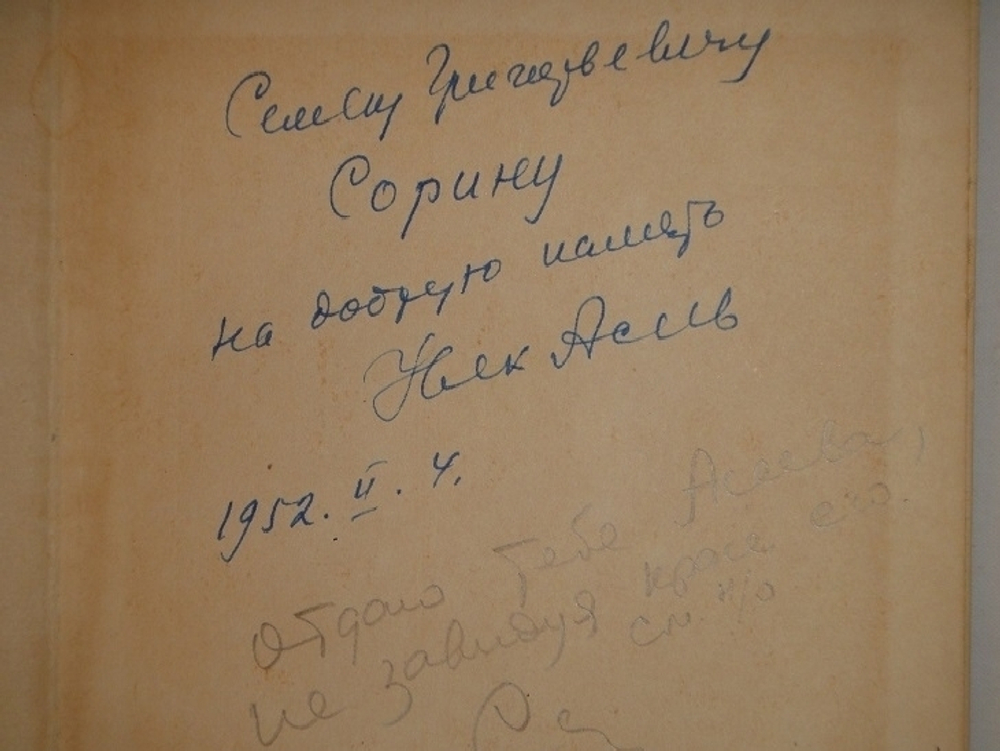 Семену Григорьевичу
Сорину
на добрую память
Ник Асеев
1952. II. 4.
Отдаю тебе Асеева,
не завидуя его.